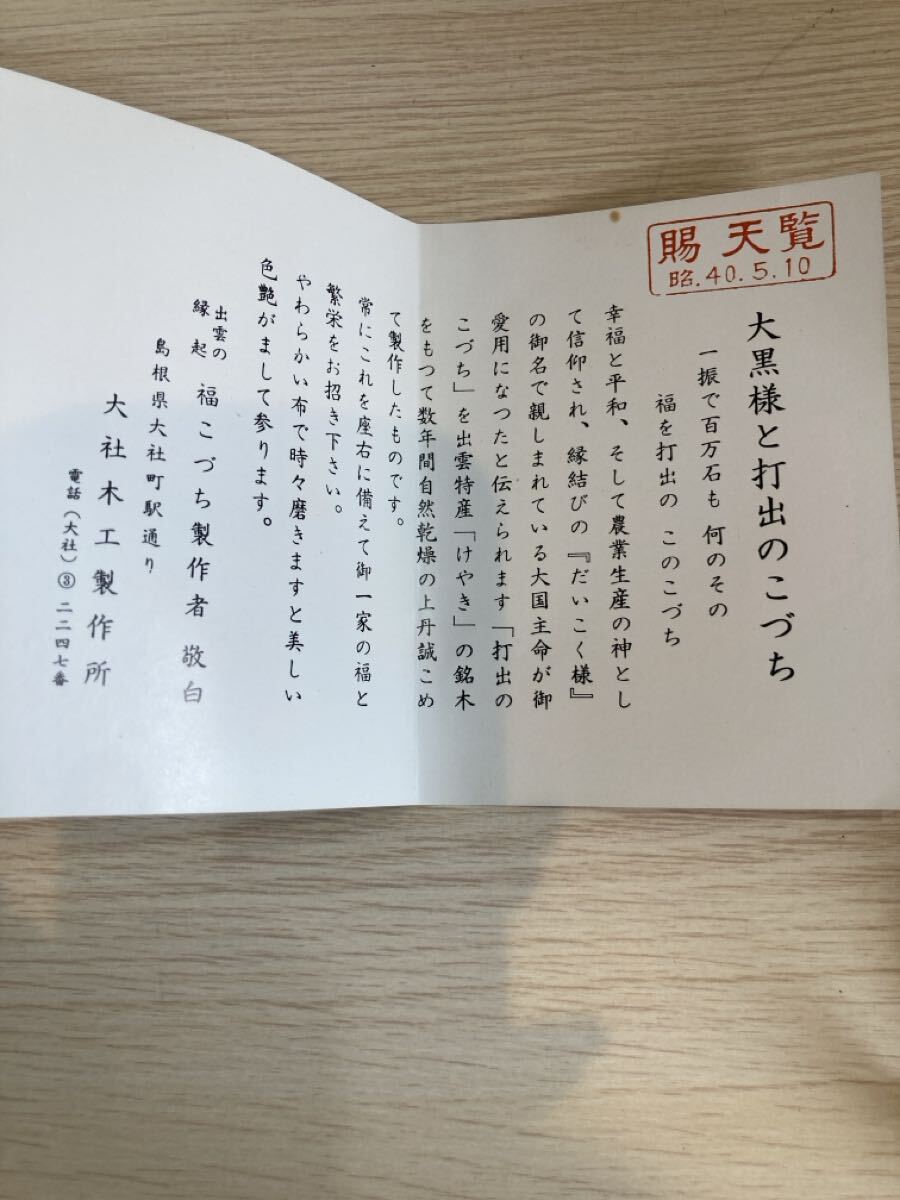 賜天覧
昭.40.5.10
大黒様と打出のこづち
一振で百万石も 何のその
福を打出の このこづち
幸福と平和、そして農業生産の神とし
て信仰され、縁結びの『だいこく様』
の御名で親しまれている大国主命が御
愛用になつたと伝えられます「打出の
こづち」を出雲特産「けやき」の銘木
をもつて数年間自然乾燥の上丹誠こめ
て製作したものです。
常にこれを座右に備えて御一家の福と
繁栄をお招き下さい。
やわらかい布で時々磨きますと美しい
色艶がまして参ります。
出雲の
縁起 福こづち製作者 敬白
島根県大社町駅通り
大社木工製作所
電話(大社)③二二四七番